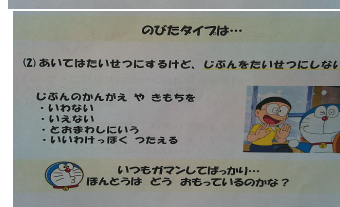 のびたタイプは…
(2)あいてはたいせつにするけど、じぶんをたいせつにしない
じぶんのかんがえ や きもちを
・いわない
・いえない
・とおまわしにいう
・いいわけっぽく つたえる
いつもガマンしてばっかり…
ほんとうは どう おもっているのかな?